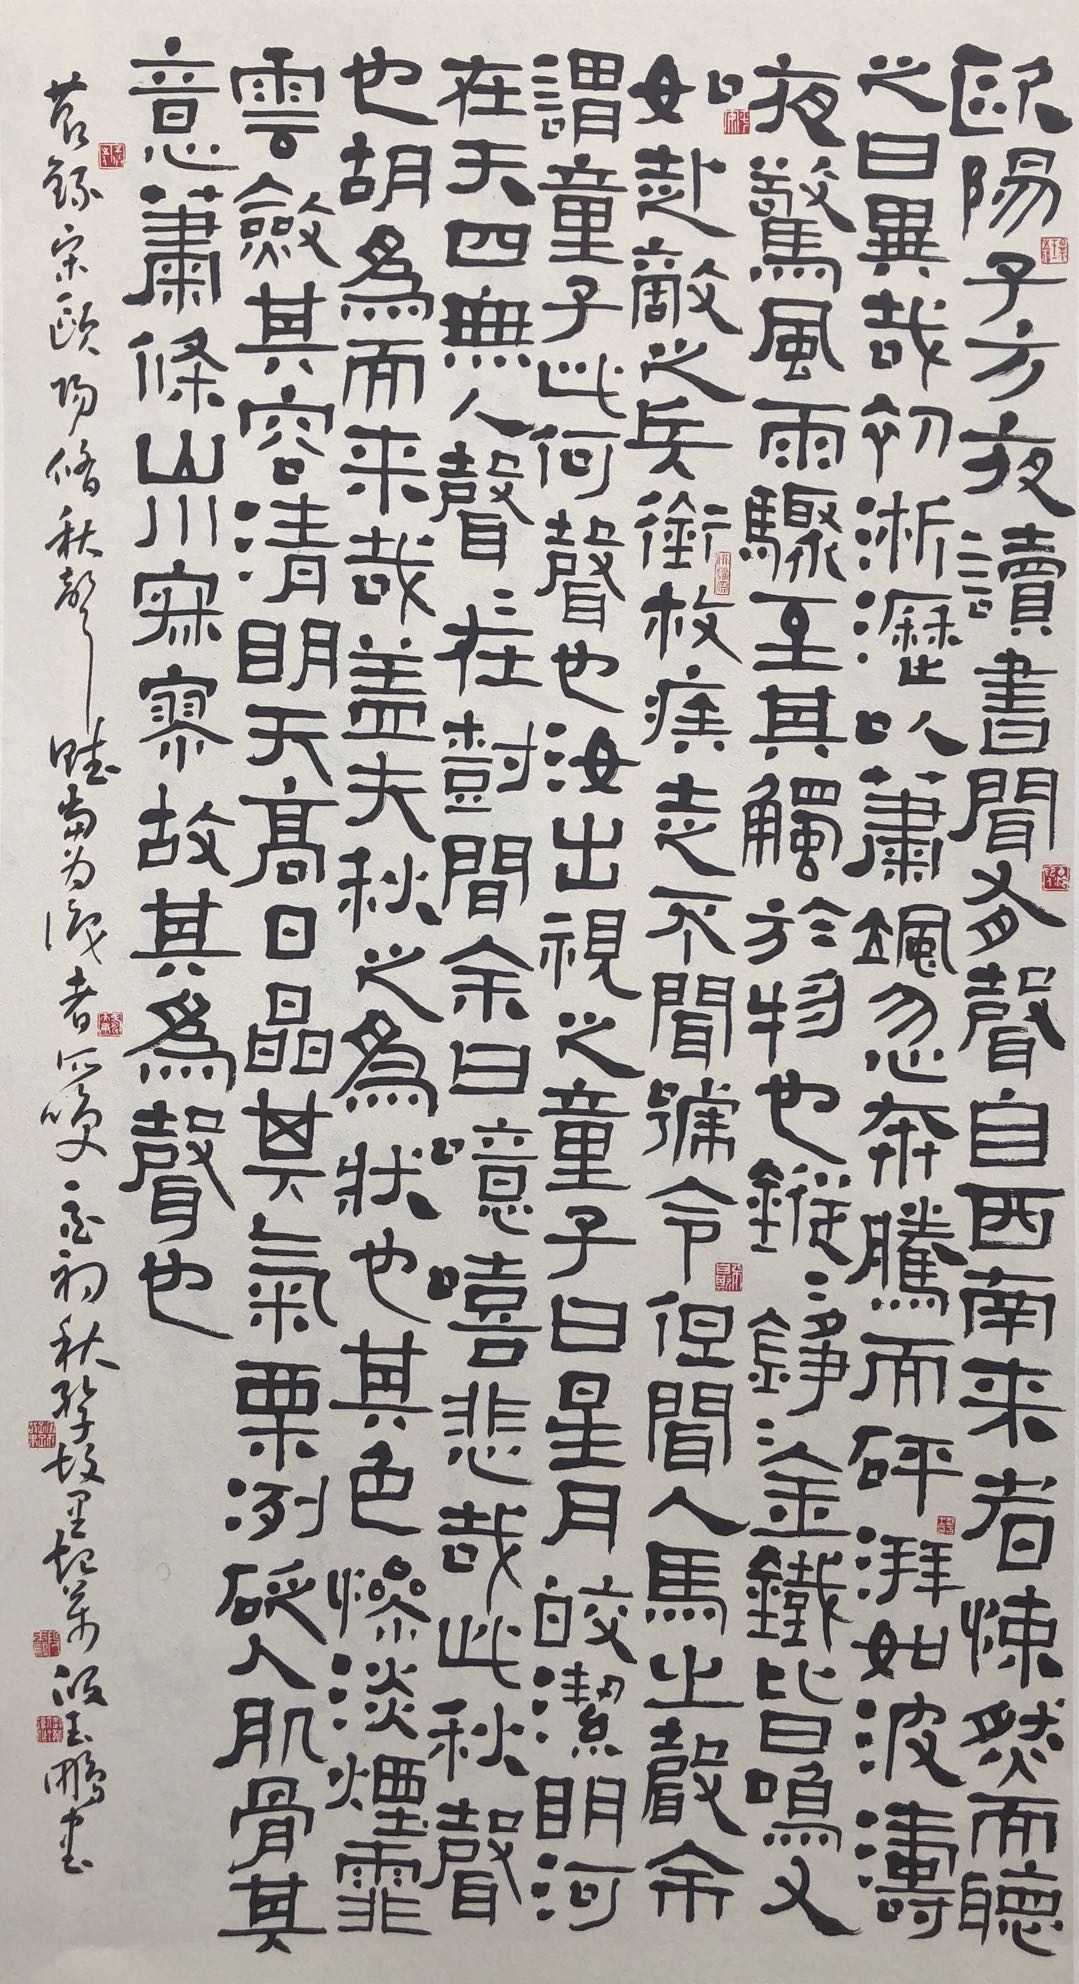 歐陽子方夜讀書聞有聲自西南来者悚然而聽
之曰異哉初淅瀝以蕭颯忽奔騰而砰湃如波濤
夜驚風雨驟至其觸於物也鏦〻錚〻金鐵皆鳴又
如赴敵之兵銜枚疾走不聞號令但聞人馬之聲余
謂童子此何聲也汝出視之童子曰星月皎潔明河
在天四無人聲〻在樹間余曰噫嘻悲哉此秋聲
也胡為而来哉盖夫秋之為狀也其色慘淡煙霏
雲斂其容清明天高日晶其氣栗冽砭人肌骨其
意蕭條山川寂寥故其為聲也
節錄宋歐陽脩秋聲賦當为識者所嗤 初秋 段玉鵬書